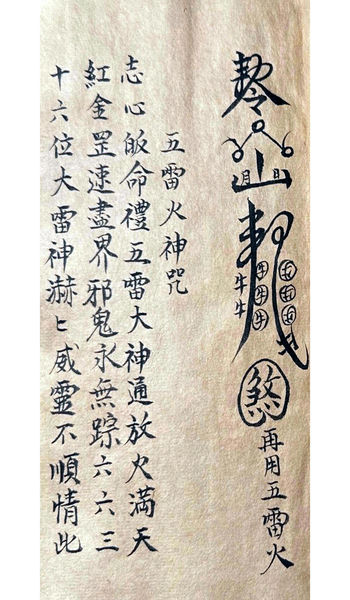 煞
再用五雷火
五雷火神咒
志心皈命禮五雷大神通放火滿天
紅金罡速盡界邪鬼永無踪六六三
十六位大雷神赫〻威靈不順情此